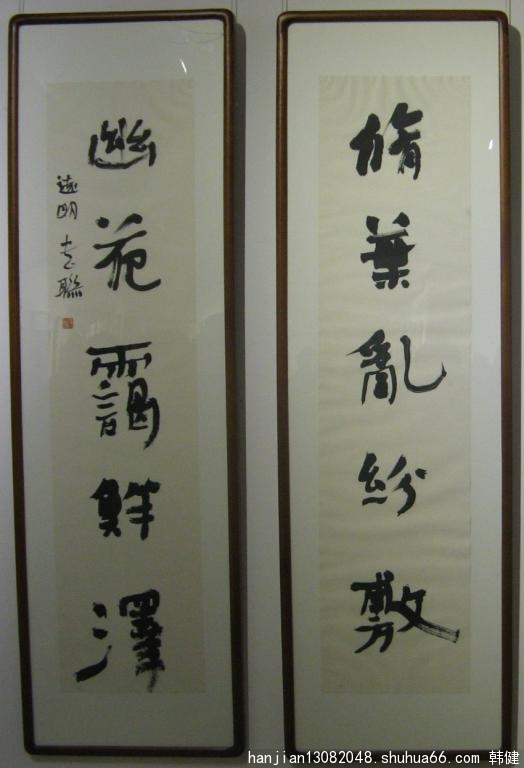 脩葉亂紛敷
幽花靄鮮澤
遠明 書聯
hanjian13082048.shuhua66.com 韩健